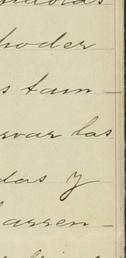 poder
s tam-
rvar las
das y
arren-